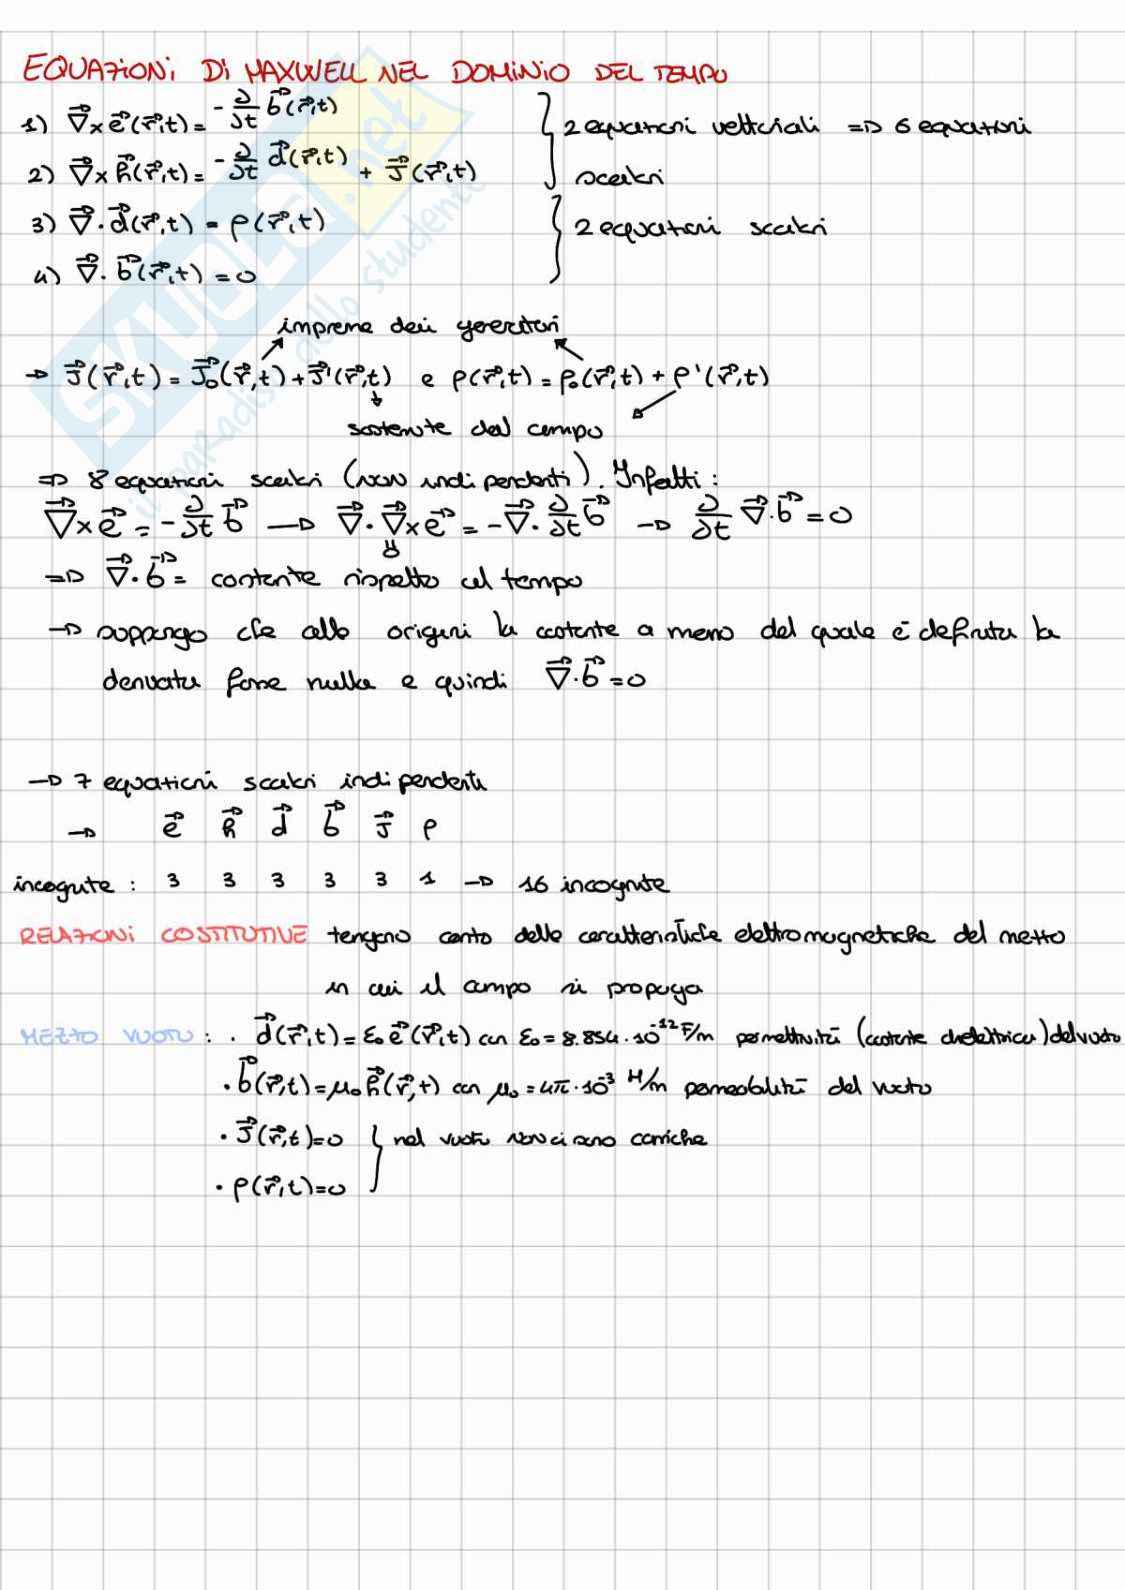 EQUAZIONI DI MAXWELL NEL DOMINIO DEL TEMPO
1) ∇⃗ × e⃗(r⃗,t) = -∂/∂t b⃗(r⃗,t)
2) ∇⃗ × h⃗(r⃗,t) = -∂/∂t d⃗(r⃗,t) + J⃗(r⃗,t)
} 2 equazioni vettoriali => 6 equazioni scalari
3) ∇⃗ · d⃗(r⃗,t) = ρ(r⃗,t)
4) ∇⃗ · b⃗(r⃗,t) = 0
} 2 equazioni scalari
impresse dai generatori
→ J⃗(r⃗,t) = J⃗₀(r⃗,t) + J⃗'(r⃗,t) e ρ(r⃗,t) = ρ₀(r⃗,t) + ρ'(r⃗,t)
sostenute dal campo
=> 8 equazioni scalari (non indipendenti). Infatti:
∇⃗ × e⃗ = -∂/∂t b⃗ → ∇⃗ · ∇⃗ × e⃗ = -∇⃗ · ∂/∂t b⃗ → ∂/∂t ∇⃗ · b⃗ = 0
=> ∇⃗ · b⃗ = costante rispetto al tempo
→ suppongo che alle origini la costante a meno del quale è definita la
derivata fosse nulla e quindi ∇⃗ · b⃗ = 0
→ 7 equazioni scalari indipendenti
→ e⃗ h⃗ d⃗ b⃗ J⃗ ρ
incognite: 3 3 3 3 3 1 → 16 incognite
RELAZIONI COSTITUTIVE tengono conto delle caratteristiche elettromagnetiche del mezzo
in cui il campo si propaga
MEZZO VUOTO: · d⃗(r⃗,t) = ε₀ e⃗(r⃗,t) con ε₀ = 8.854 · 10⁻¹² F/m permettività (costante dielettrica) del vuoto
· b⃗(r⃗,t) = μ₀ h⃗(r⃗,t) con μ₀ = 4π · 10⁻³ H/m permeabilità del vuoto
· J⃗(r⃗,t) = 0
· ρ(r⃗,t) = 0
} nel vuoto non ci sono cariche
SKUOLA.net
il paradiso dello studente